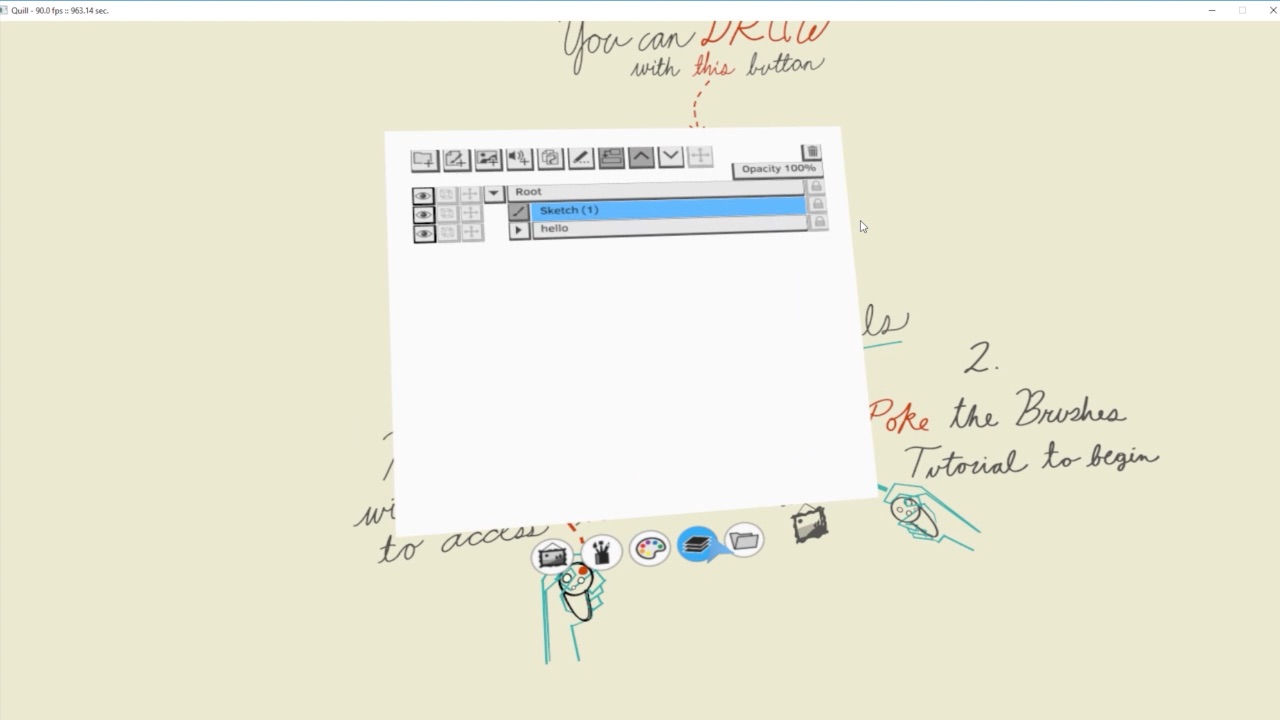 Quill - 90.0 fps :: 963.14 sec.
You can DRAW
with this button
Opacity 100%
Root
Sketch (1)
hello
ls
2.
Poke the Brushes
Tutorial to begin
wi
to access